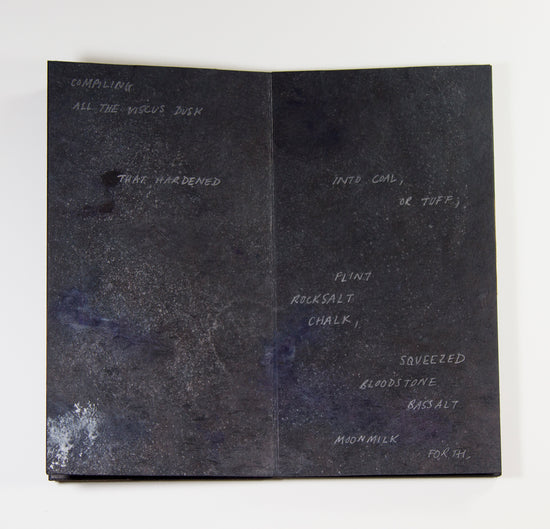 COMPILING
ALL THE VISCUS DUSK
THAT HARDENED
INTO COAL,
OR TUFF;
FLINT
ROCKSALT
CHALK,
SQUEEZED
BLOODSTONE
BASSALT
MOONMILK
FORTH.